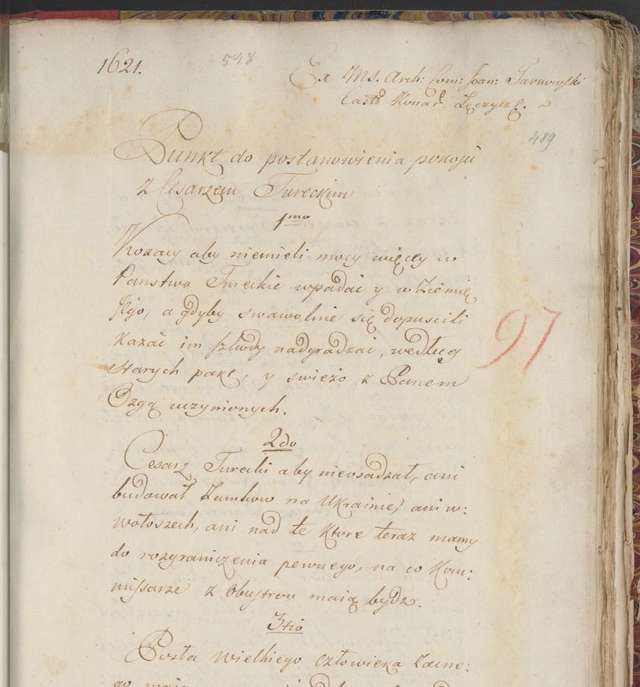 1621.
548
Ex Ms. Arch: Com: Joan: Tarnowski
Castel: Konar: Łęczyc:
489
Punkt do postanowienia pokoju
z Cesarzem Tureckim
1mo
Kozacy aby niemieli mocy więcey w
Państwa Tureckie wpadać y w Ziemię
Jego, a gdyby swawolnie się dopuscili
kazać im szkody nadgradzać, według
starych pakt, y swieżo z Panem
Ożgą uczynionych.
97
2do
Cesarz Turecki aby nieosadzał, ani
budował Zamkow na Ukrainie, ani w
wołoszech, ani nad te ktore teraz mamy
do rozgraniczenia pewnego, na co Kom:
missarze z Obustron maią bydz.
3tio
Posła wielkiego człowieka zacne:
go